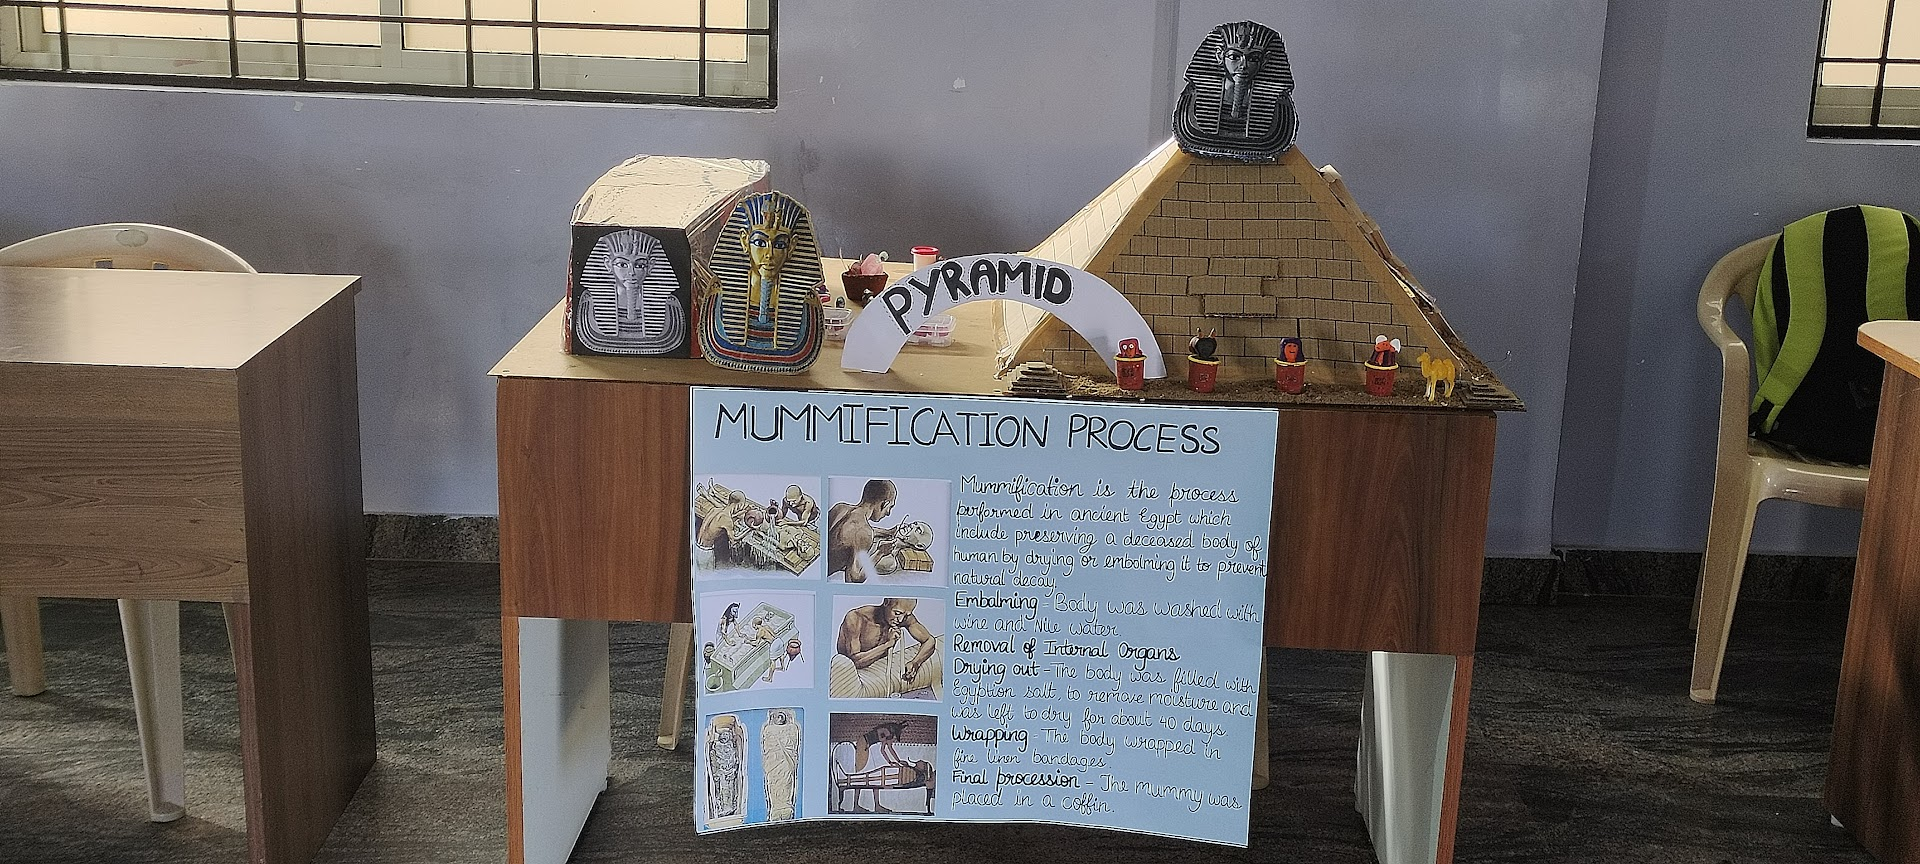 PYRAMID
MUMMIFICATION PROCESS
Mummification is the process
performed in ancient Egypt which
include preserving a deceased body of
human by drying or embolming it to prevent
natural decay.
Embalming - Body was washed with
wine and Nile water.
Removal of Internal Organs
Drying out - The body was filled with
Egyption salt, to remove moisture and
was left to dry for about 40 days.
Wrapping - The body wrapped in
fine linen bandages.
Final procession - The mummy was
placed in a coffin.